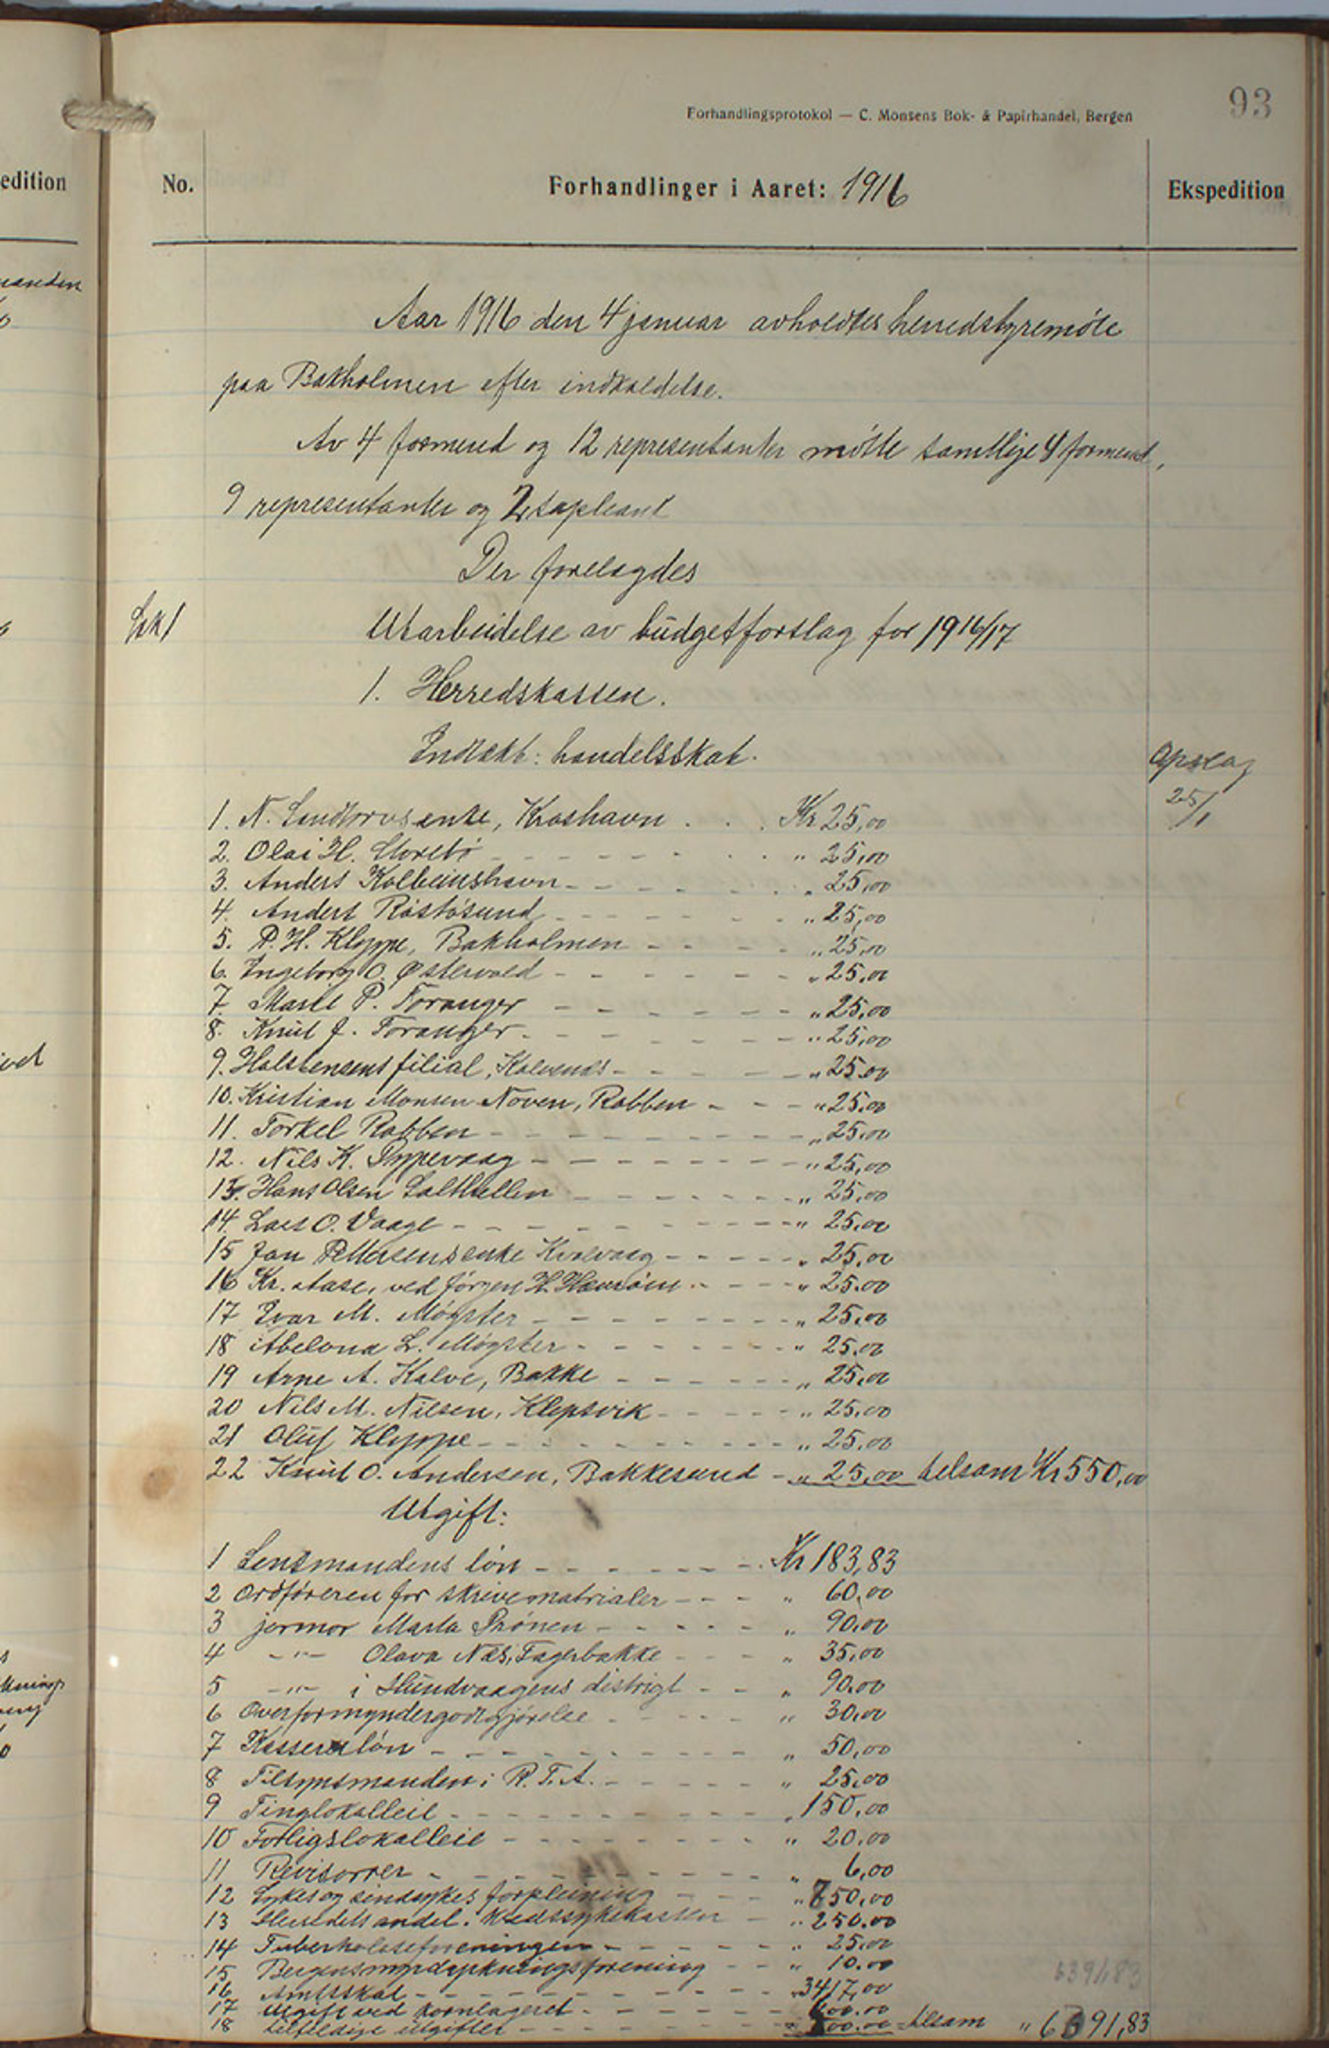 93
Forhandlingsprotokol — C. Monsens Bok- & Papirhandel, Bergen
edition
No.
Forhandlinger i Aaret: 1916
Ekspedition
Aar 1916 den 4 januar avholdtes herredstyremøte
paa Bakholmen efter indkaldelse.
Av 4 formend og 12 representanter møtte samtlige 4 formend,
9 representanter og 2 supleant
Der forelagdes
Sak 1
Utarbeidelse av budgetforslag for 1916/17
1. Herredskassen.
Indtækt: handelsskat.
Opslag
25/1
1. N. Landrovs enke, Kroshavn . . . Kr 25,00
2. Olai H. Storebø " 25,00
3. Anders Kolbeinshavn " 25,00
4. Anders Røstøsund " 25,00
5. P. H. Kleppe, Bakholmen " 25,00
6. Ingeborg O. Østervold " 25,00
7. P. Foranger " 25,00
8. Knut J. Foranger " 25,00
9. Halstensens filial, " 25.00
10. Kristian Monsen Noven, Rabben " 25,00
11. Torkel Rabben " 25,00
12. Nils K. Pyppevaag " 25,00
13. Hans Olsen Salthellen " 25,00
14. Lars O. Vaage " 25.00
15 Jan Pettersens enke Kvalvaag " 25,00
16 Kr. Aase, ved Jørgen H. " 25.00
17 Ivar M. Møgster " 25,00
18 Abelona L. Møgster " 25,00
19 Arne A. Kalve, Bakke " 25,00
20 Nils M. Nilsen, Klepsvik " 25.00
21 Oluf Kleppe " 25.00
22 Knut O. Andersen, Bakkesund " 25,00 tilsam Kr 550,00
Utgift:
1 Lensmandens løn Kr 183,83
2 Ordføreren for skrivematrialer " 60,00
3 jormor Marta Prønen " 90,00
4 —"— Olava Næs, Fagerbakke " 35,00
5 —"— i Hundvaagens distrigt " 90.00
6 Overformyndergodtgjørelse " 30,00
7 Kasserer løn " 50,00
8 Tilsynsmanden i R. T. A. " 25,00
9 Tinglokalleie " 150,00
10 Forligslokalleie " 20.00
11 Revisorrer " 6,00
12 Sykes og sindsykes forpleining " 750,00
13 Herredets andel i kredssykekassen " 250.00
14 Tuberkoloseforeningen " 25.00
15 Bergens myrdyrkningsforening " 10.00
16 Amtsskat " 3417,00
17 Utgift ved kornlageret 600.00
18 tilfeldige utgifter 500.00 tilsam " 6391,83
6391,83